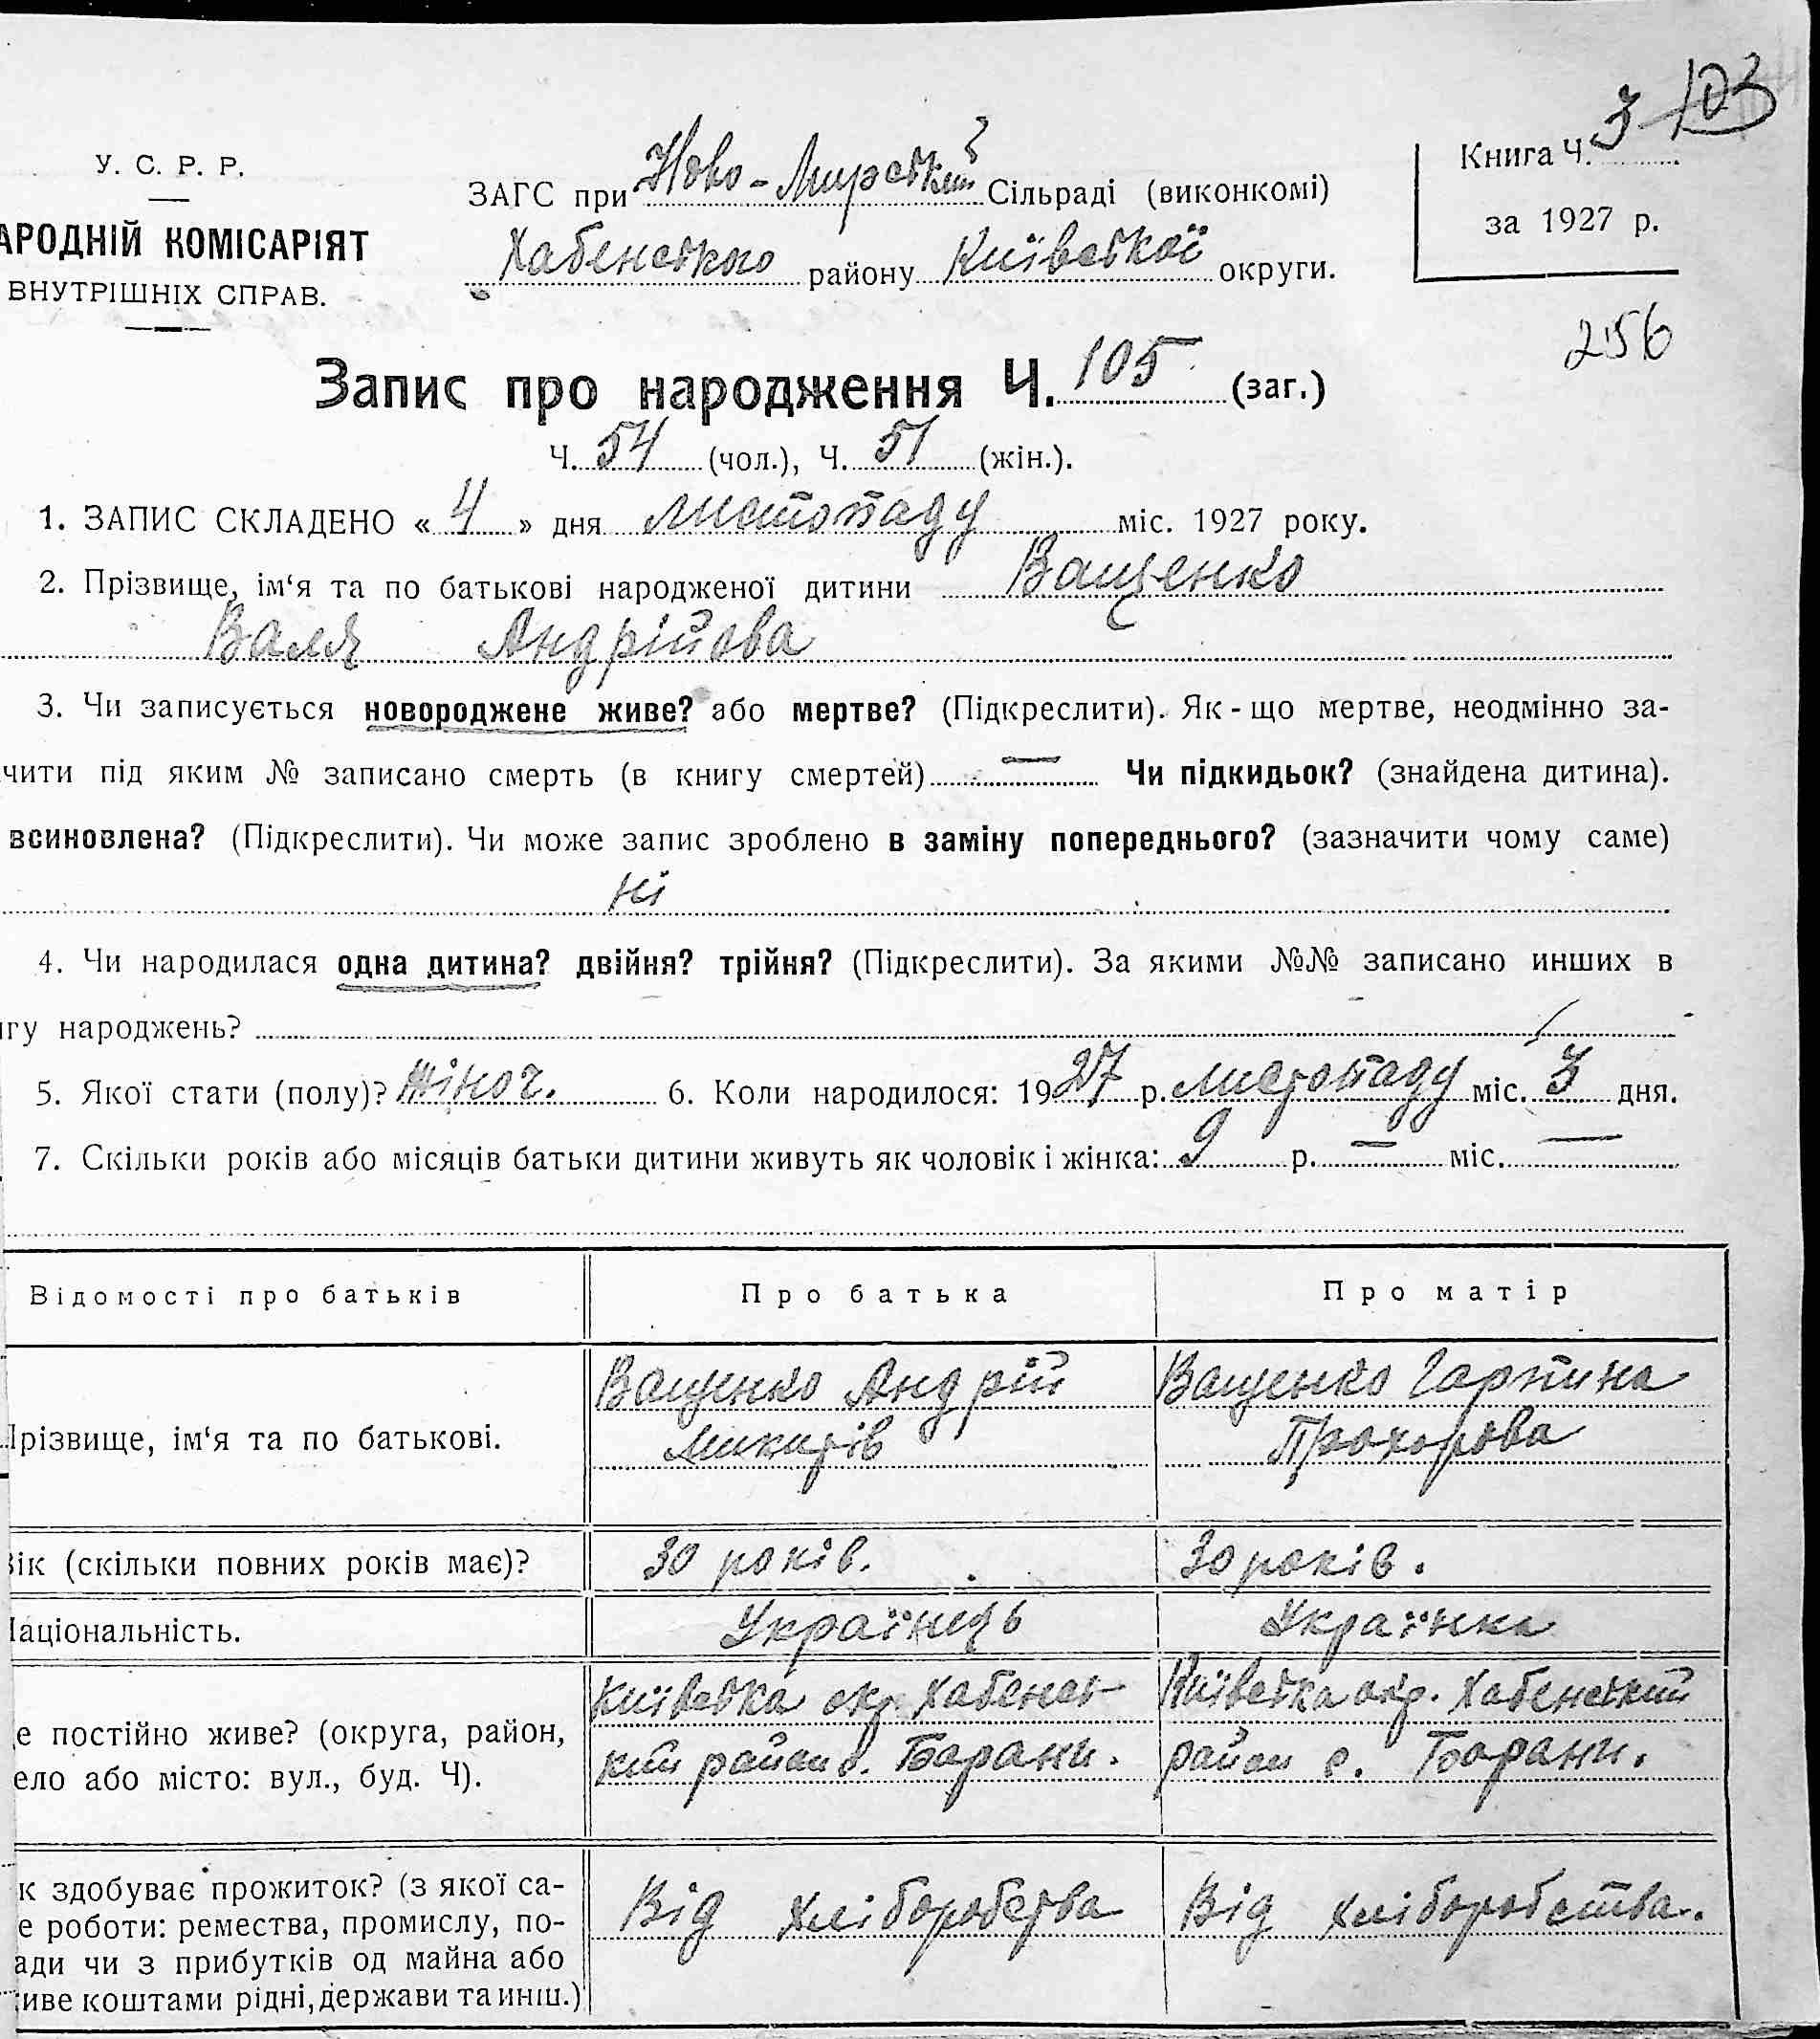 3 103
У. С. Р. Р.
АРОДНІЙ КОМІСАРІЯТ
ВНУТРІШНІХ СПРАВ.
ЗАГС при Ново-Мирській Сільраді (виконкомі)
Хабенського району Київської округи.
Книга Ч.
за 1927 р.
256
Запис про народження Ч. 105 (заг.)
Ч. 54 (чол.), Ч. 51 (жін.).
1. ЗАПИС СКЛАДЕНО « 4 » дня листопаду міс. 1927 року.
2. Прізвище, ім‘я та по батькові народженої дитини Ващенко
Валя Андрійова
3. Чи записується новороджене живе? або мертве? (Підкреслити). Як-що мертве, неодмінно за-
чити під яким № записано смерть (в книгу смертей) — Чи підкидьок? (знайдена дитина).
всиновлена? (Підкреслити). Чи може запис зроблено в заміну попереднього? (зазначити чому саме)
ні
4. Чи народилася одна дитина? двійня? трійня? (Підкреслити). За якими №№ записано инших в
гу народжень?
5. Якої стати (полу)? жіноч. 6. Коли народилося: 1927 р. листопаду міс. 3 дня.
7. Скільки років або місяців батьки дитини живуть як чоловік і жінка: 9 р. — міс. —
Відомості про батьків
Про батька
Про матір
Прізвище, ім‘я та по батькові.
Ващенко Андрій
Микитів
Ващенко Гарпина
Прохорова
Вік (скільки повних років має)?
30 років.
30 років.
Національність.
Українець
Українка
е постійно живе? (округа, район,
ело або місто: вул., буд. Ч).
Київська окр. Хабенсь-
кий район с. Барани.
Київська окр. Хабенський
район с. Барани.
к здобуває прожиток? (з якої са-
е роботи: ремества, промислу, по-
ади чи з прибутків од майна або
иве коштами рідні, держави та инш.)
Від хліборобства
Від хліборобства.